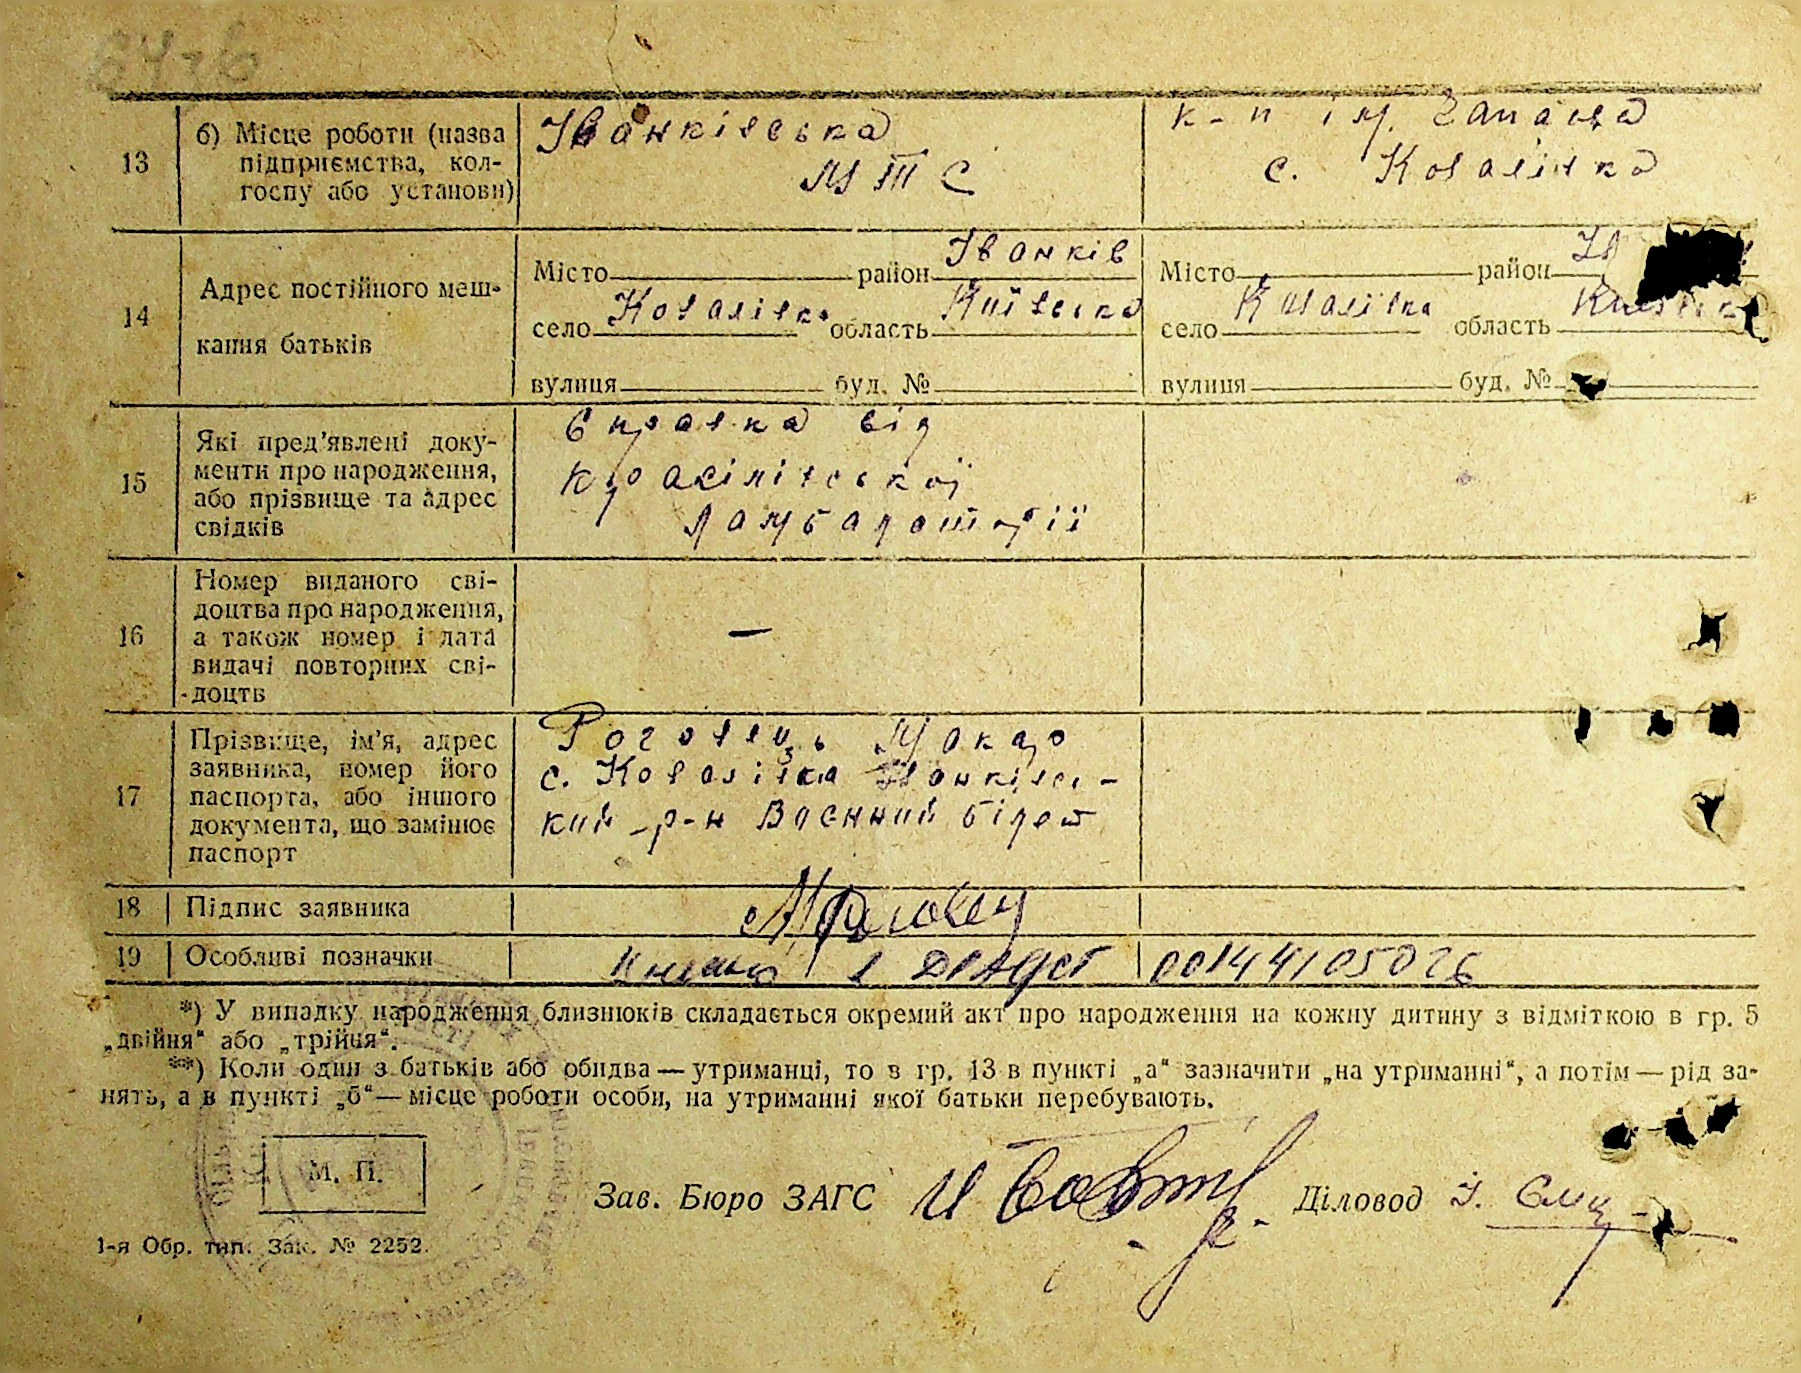 13
б) Місце роботи (назва
підприємства, кол-
госпу або установи)
Іванківська
МТС
к-п ім. Чапаєва
с. Ковалівка
14
Адрес постійного меш-
кання батьків
Місто район Іванків
село Ковалівка область Київська
вулиця буд. №
Місто район Ів
село Ковалівка область Київськ
вулиця буд. №
15
Які пред’явлені доку-
менти про народження,
або прізвище та адрес
свідків
Справка від
красілівської
16
Номер виданого сві-
доцтва про народження,
а також номер і дата
видачі повторних сві-
доцтв
—
17
Прізвище, ім’я, адрес
заявника, номер його
паспорта, або іншого
документа, що замінює
паспорт
Роговець Макар
с. Ковалівка Іванківсь-
кий р-н Воєнний білет
18 Підпис заявника
МРоговец
19 Особливі позначки
00144105026
*) У випадку народження близнюків складається окремий акт про народження на кожну дитину з відміткою в гр. 5
„двійня“ або „трійня“.
**) Коли один з батьків або обидва — утриманці, то в гр. 13 в пункті „а“ зазначити „на утриманні“, а потім — рід за-
нять, а в пункті „б“ — місце роботи особи, на утриманні якої батьки перебувають.
М. П.
Зав. Бюро ЗАГС
Діловод
1-я Обр. тип. Зак. № 2252.